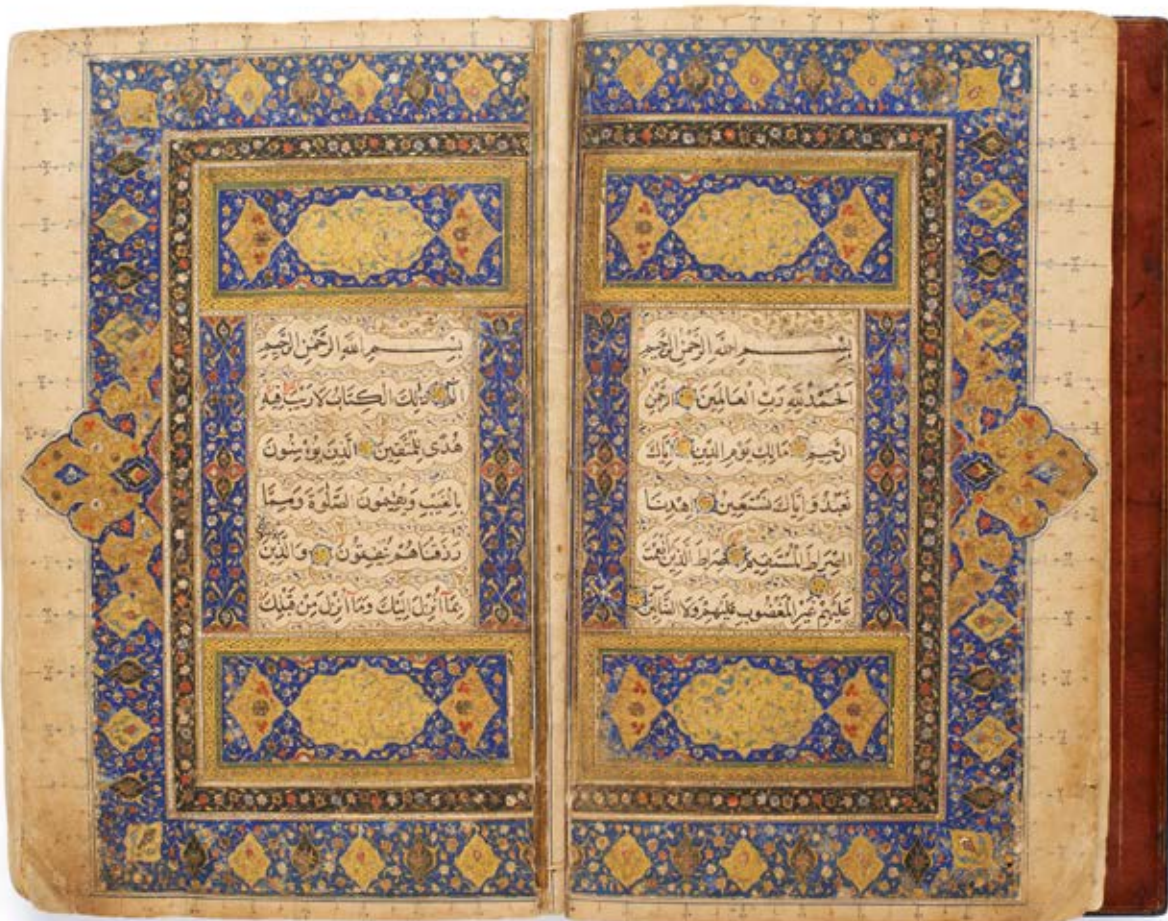 بِسْمِ اللهِ الرَّحْمٰنِ الرَّحِيمِ
اَلْحَمْدُ لِلّٰهِ رَبِّ الْعَالَمِينَ الرَّحْمٰنِ
الرَّحِيمِ مَالِكِ يَوْمِ الدِّينِ اِيَّاكَ
نَعْبُدُ وَاِيَّاكَ نَسْتَعِينُ اِهْدِنَا
الصِّرَاطَ الْمُسْتَقِيمَ صِرَاطَ الَّذِينَ اَنْعَمْتَ
عَلَيْهِمْ غَيْرِ الْمَغْضُوبِ عَلَيْهِمْ وَلَا الضَّالِّينَ
بِسْمِ اللهِ الرَّحْمٰنِ الرَّحِيمِ
الٓمٓ ذٰلِكَ الْكِتَابُ لَا رَيْبَ فِيهِ
هُدًى لِلْمُتَّقِينَ الَّذِينَ يُؤْمِنُونَ
بِالْغَيْبِ وَيُقِيمُونَ الصَّلٰوةَ وَمِمَّا
رَزَقْنَاهُمْ يُنْفِقُونَ وَالَّذِينَ
بِمَآ اُنْزِلَ اِلَيْكَ وَمَآ اُنْزِلَ مِنْ قَبْلِكَ